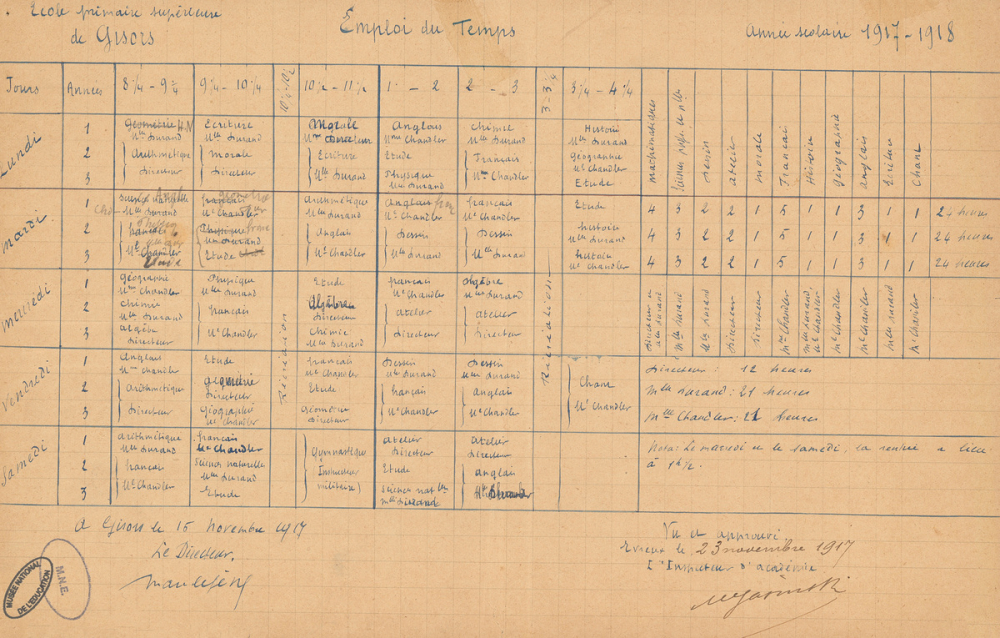 Ecole primaire supérieure
de Gisors
Emploi du Temps
Année scolaire 1917-1918
Jours Années 8 1/4 - 9 1/4 9 1/4 - 10 1/4 10 1/4-10 1/2 10 1/2 - 11 1/2 1 - 2 2 - 3 3-3 1/4 3 1/4 - 4 1/4
mathématiques
Dessin
atelier
morale
Français
Histoire
Géographie
anglais
Ecriture
Chant
Lundi
1 Géométrie Ecriture Morale Anglais Chimie Histoire
Mlle Durand Mlle Durand Directeur Mlle Durand Mlle Durand Mlle Durand
2 Arithmétique Morale Ecriture Etude Français Géographie
3 Directeur Directeur Mlle Durand Physique Mlle Chandler Mlle Chandler
Mlle Durand Etude
Mardi
1 français Arithmétique Anglais français Etude
Mlle Durand Mlle Chandler Mlle Durand Mlle Chandler Mlle Chandler
2 français Physique Anglais Dessin Dessin histoire
Mlle Durand Mlle Durand
3 Mlle Chandler Etude Mlle Chandler Mlle Durand Mlle Durand histoire
Etude Mlle Chandler
4 3 2 2 1 5 1 1 3 1 1 24 heures
4 3 2 2 1 5 1 1 3 1 1 24 heures
4 3 2 2 1 5 1 1 3 1 1 24 heures
Mercredi
1 Géographie Physique Etude français Algèbre
Mlle Chandler Mlle Durand Mlle Chandler Mlle Durand
2 Chimie français Algèbre atelier atelier
Mlle Durand Directeur
3 algèbre Mlle Chandler Chimie Directeur Directeur
Directeur Mlle Durand
Directeur
Mlle Durand
Mlle Durand
Mlle Durand
Directeur
Directeur
Mlle Chandler
Mlle Durand,
Mlle Chandler
Mlle Chandler
Mlle Chandler
Mlle Durand
Mlle Chandler
Récréation
Récréation
Vendredi
1 Anglais Etude français Dessin Dessin
Mlle Chandler Mlle Chandler Mlle Durand Mlle Durand
2 Arithmétique Géométrie Etude français anglais Chant
Directeur
3 Directeur Géographie Géométrie Mlle Chandler Mlle Chandler Mlle Chandler
Mlle Chandler Directeur
Directeur : 12 heures
Mlle Durand : 21 heures
Mlle Chandler : 21 heures
Samedi
1 Arithmétique français Gymnastique atelier atelier
Mlle Durand Mlle Chandler Directeur Directeur
2 français Science naturelle Instructeur Etude anglais
Mlle Durand
3 Mlle Chandler Etude militaire Science natlle
Mlle Durand
Nota : Le mardi et le samedi, la rentrée a lieu
à 1h 1/2.
A Gisors le 15 novembre 1917
Le Directeur,
Vu et approuvé
Evreux le 23 novembre 1917
L'Inspecteur d'académie
MUSÉE NATIONAL
DE L'ÉDUCATION
M.N.E.